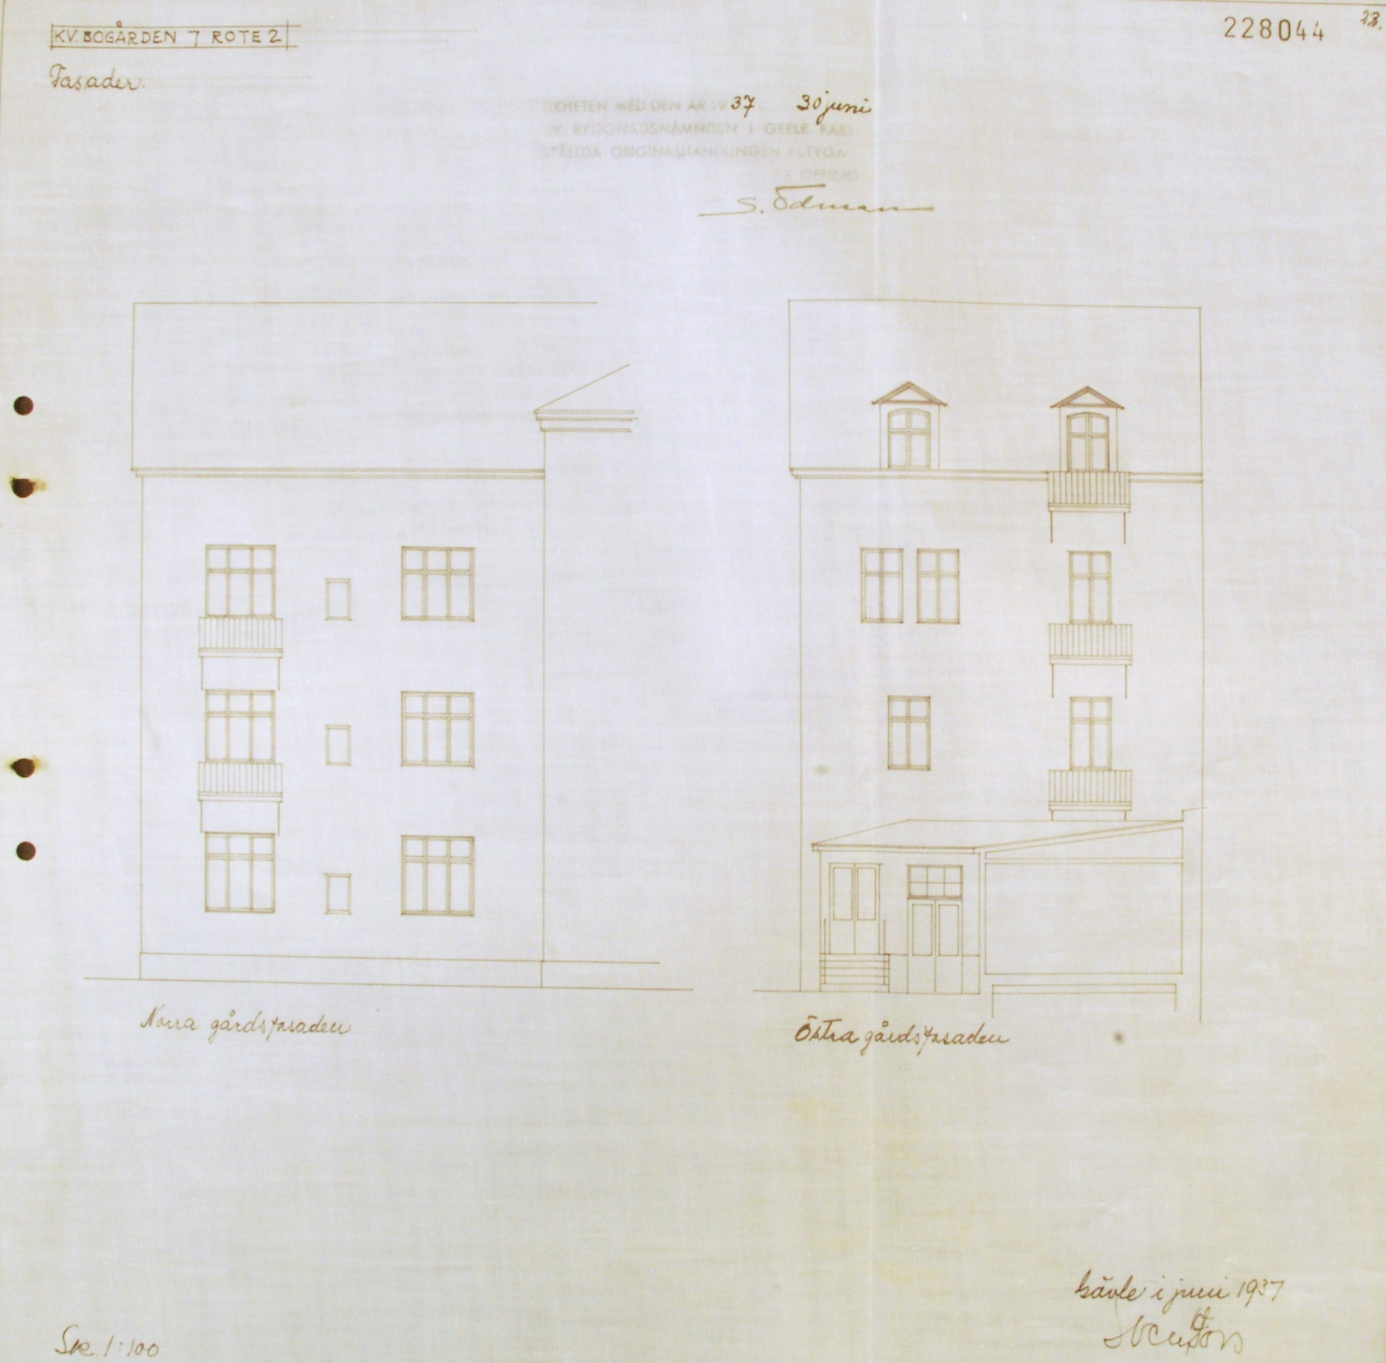 KV. BOGÅRDEN 7 ROTE 2
228044
23.
Fasader.
LIKHETEN MED DEN ÅR 1937 30 juni
AV BYGGNADSNÄMNDEN I GEFLE FAST
STÄLLDA ORIGINALHANDLINGEN BETYGA
EX OFFICIO
S. Ödman
Norra gårdsfasaden
Östra gårdsfasaden
Gävle i juni 1937
Sk. 1:100